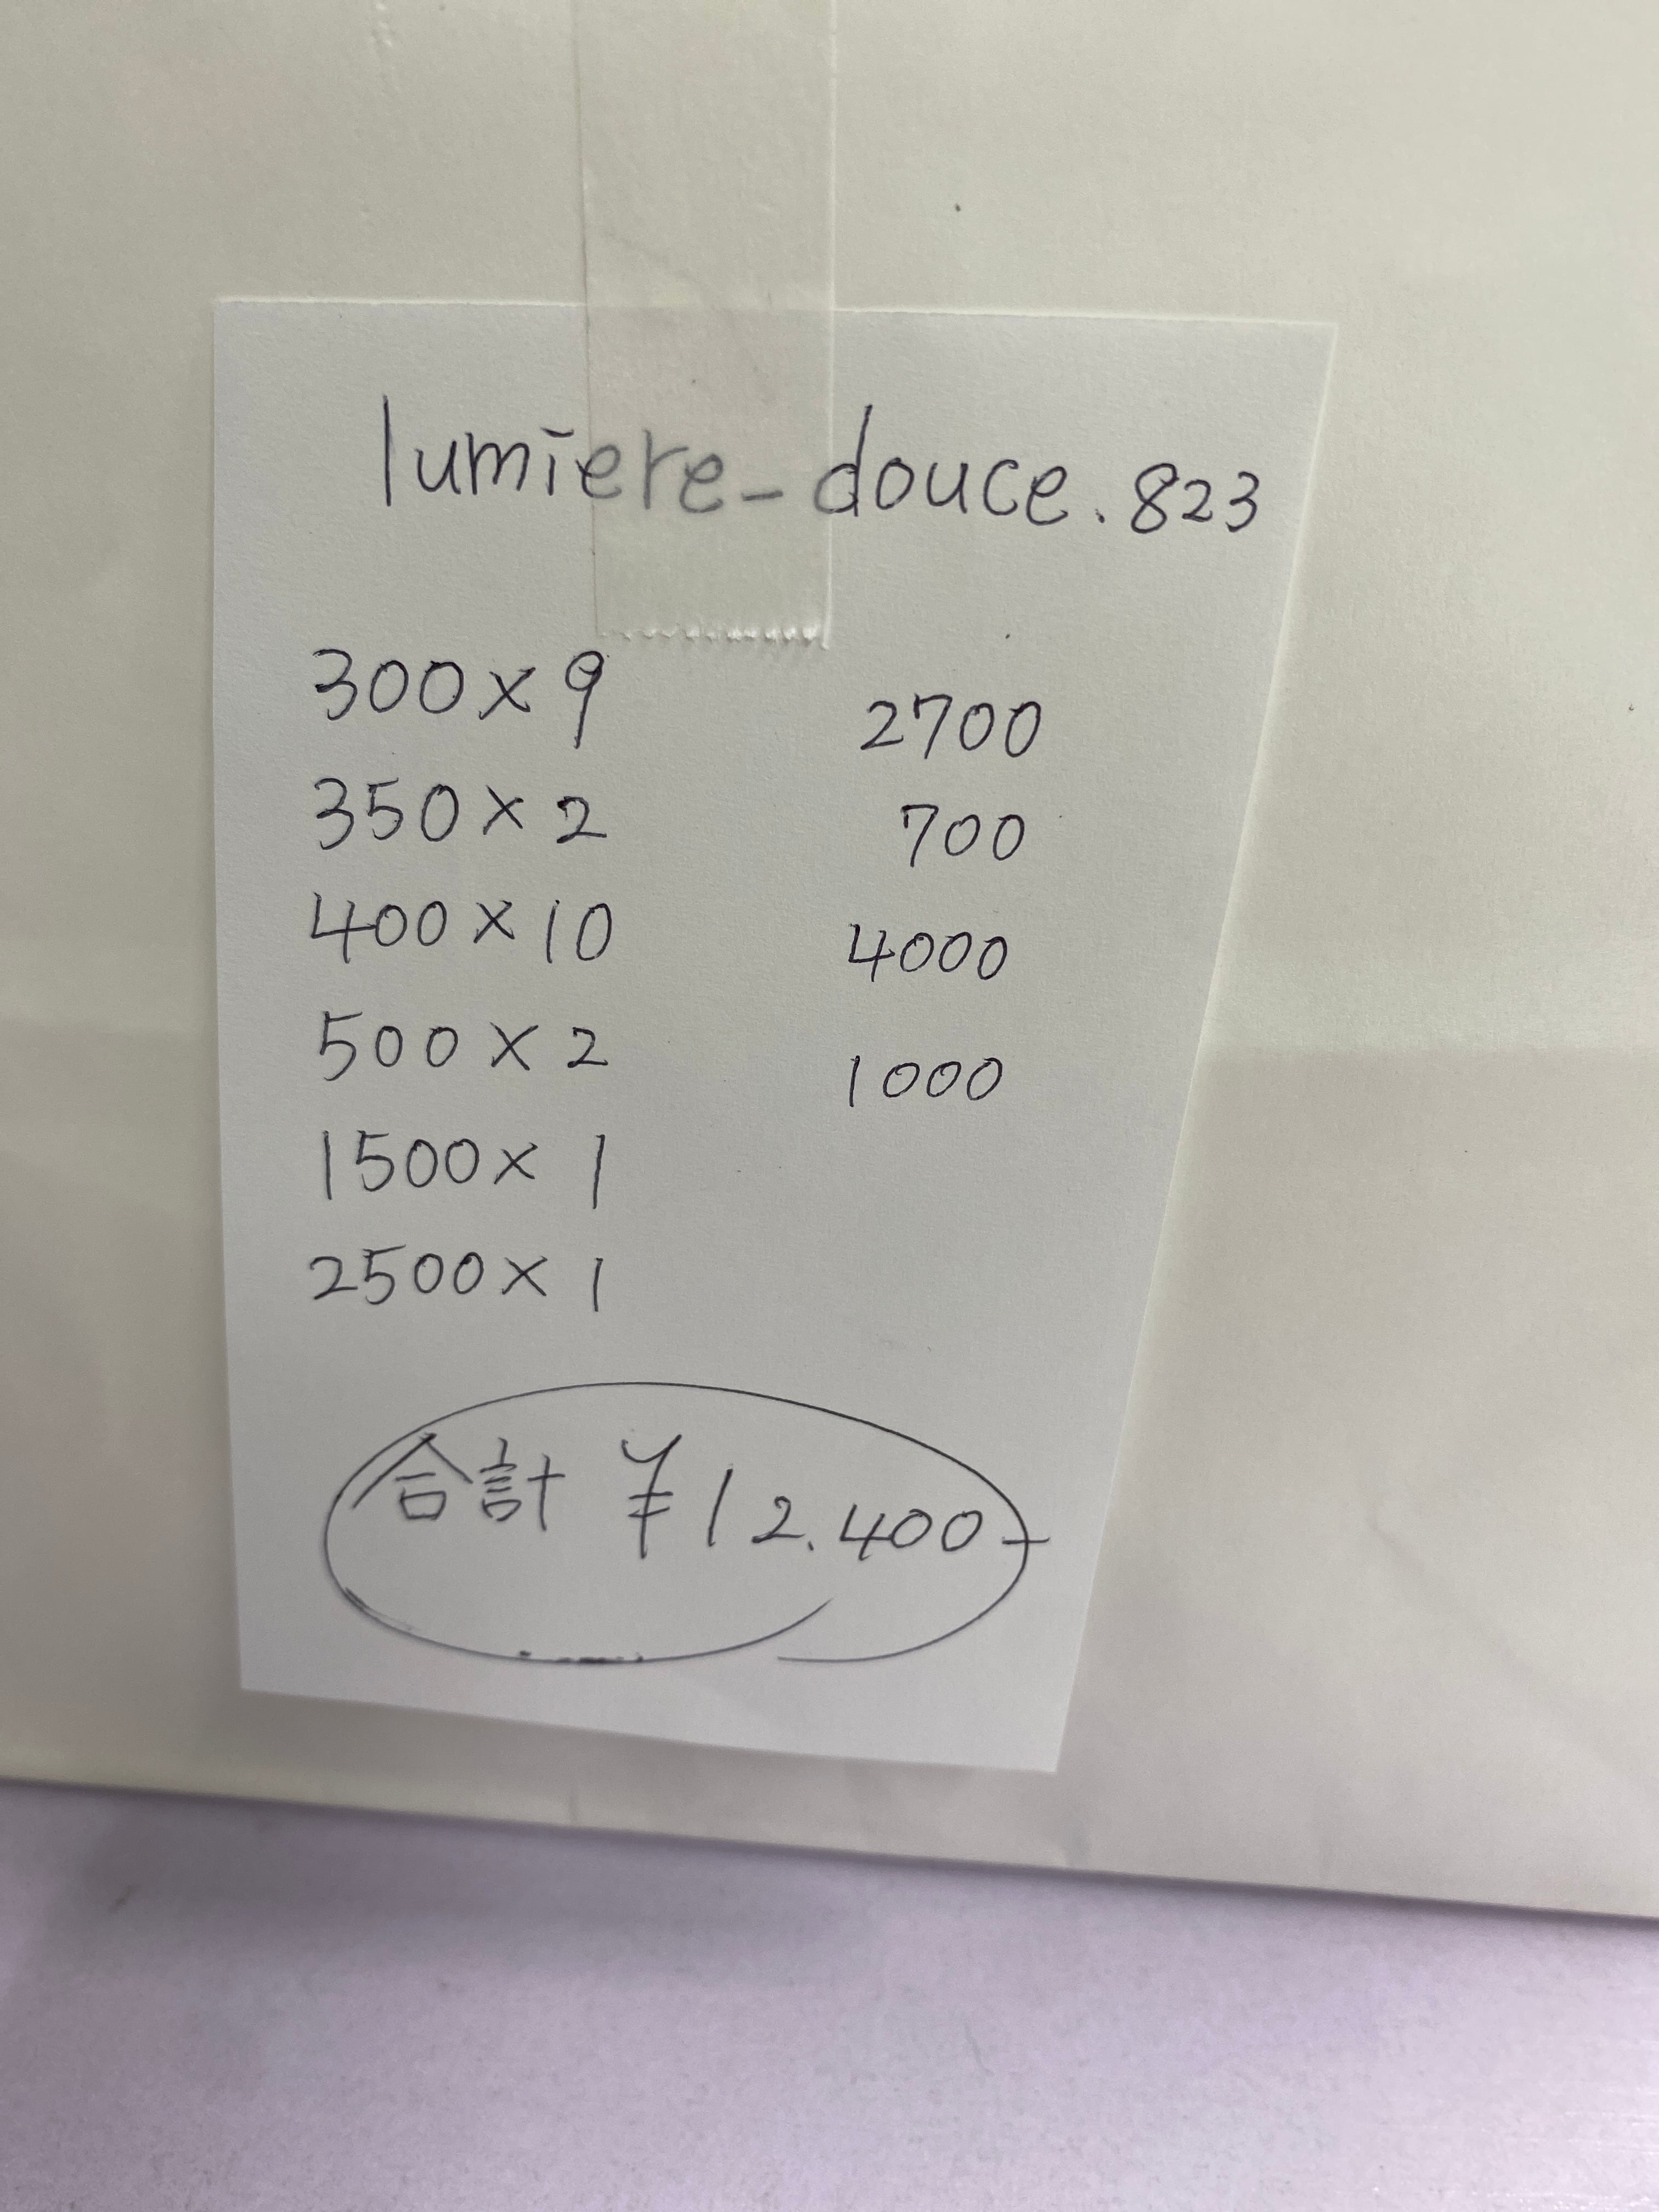 lumiere_douce.823
300×9 2700
350×2 700
400×10 4000
500×2 1000
1500×1
2500×1
合計 ¥12.400-